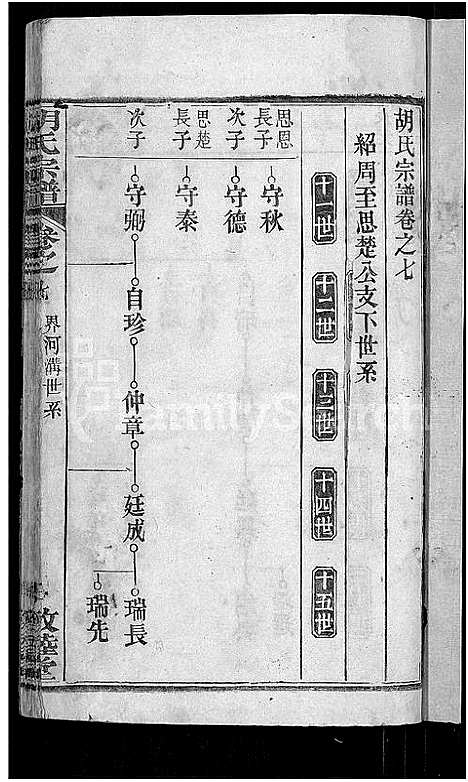 胡氏宗譜卷之七
紹周至思楚公支下世系
十一世 十二世 十三世 十四世 十五世
思恩長子 守秋
次子 守德
思楚長子 守泰
次子 守弼 自珍 仲章 廷成 瑞長
瑞先
胡氏宗譜 卷之七 界河溝世系 敦睦堂
FamilySearch